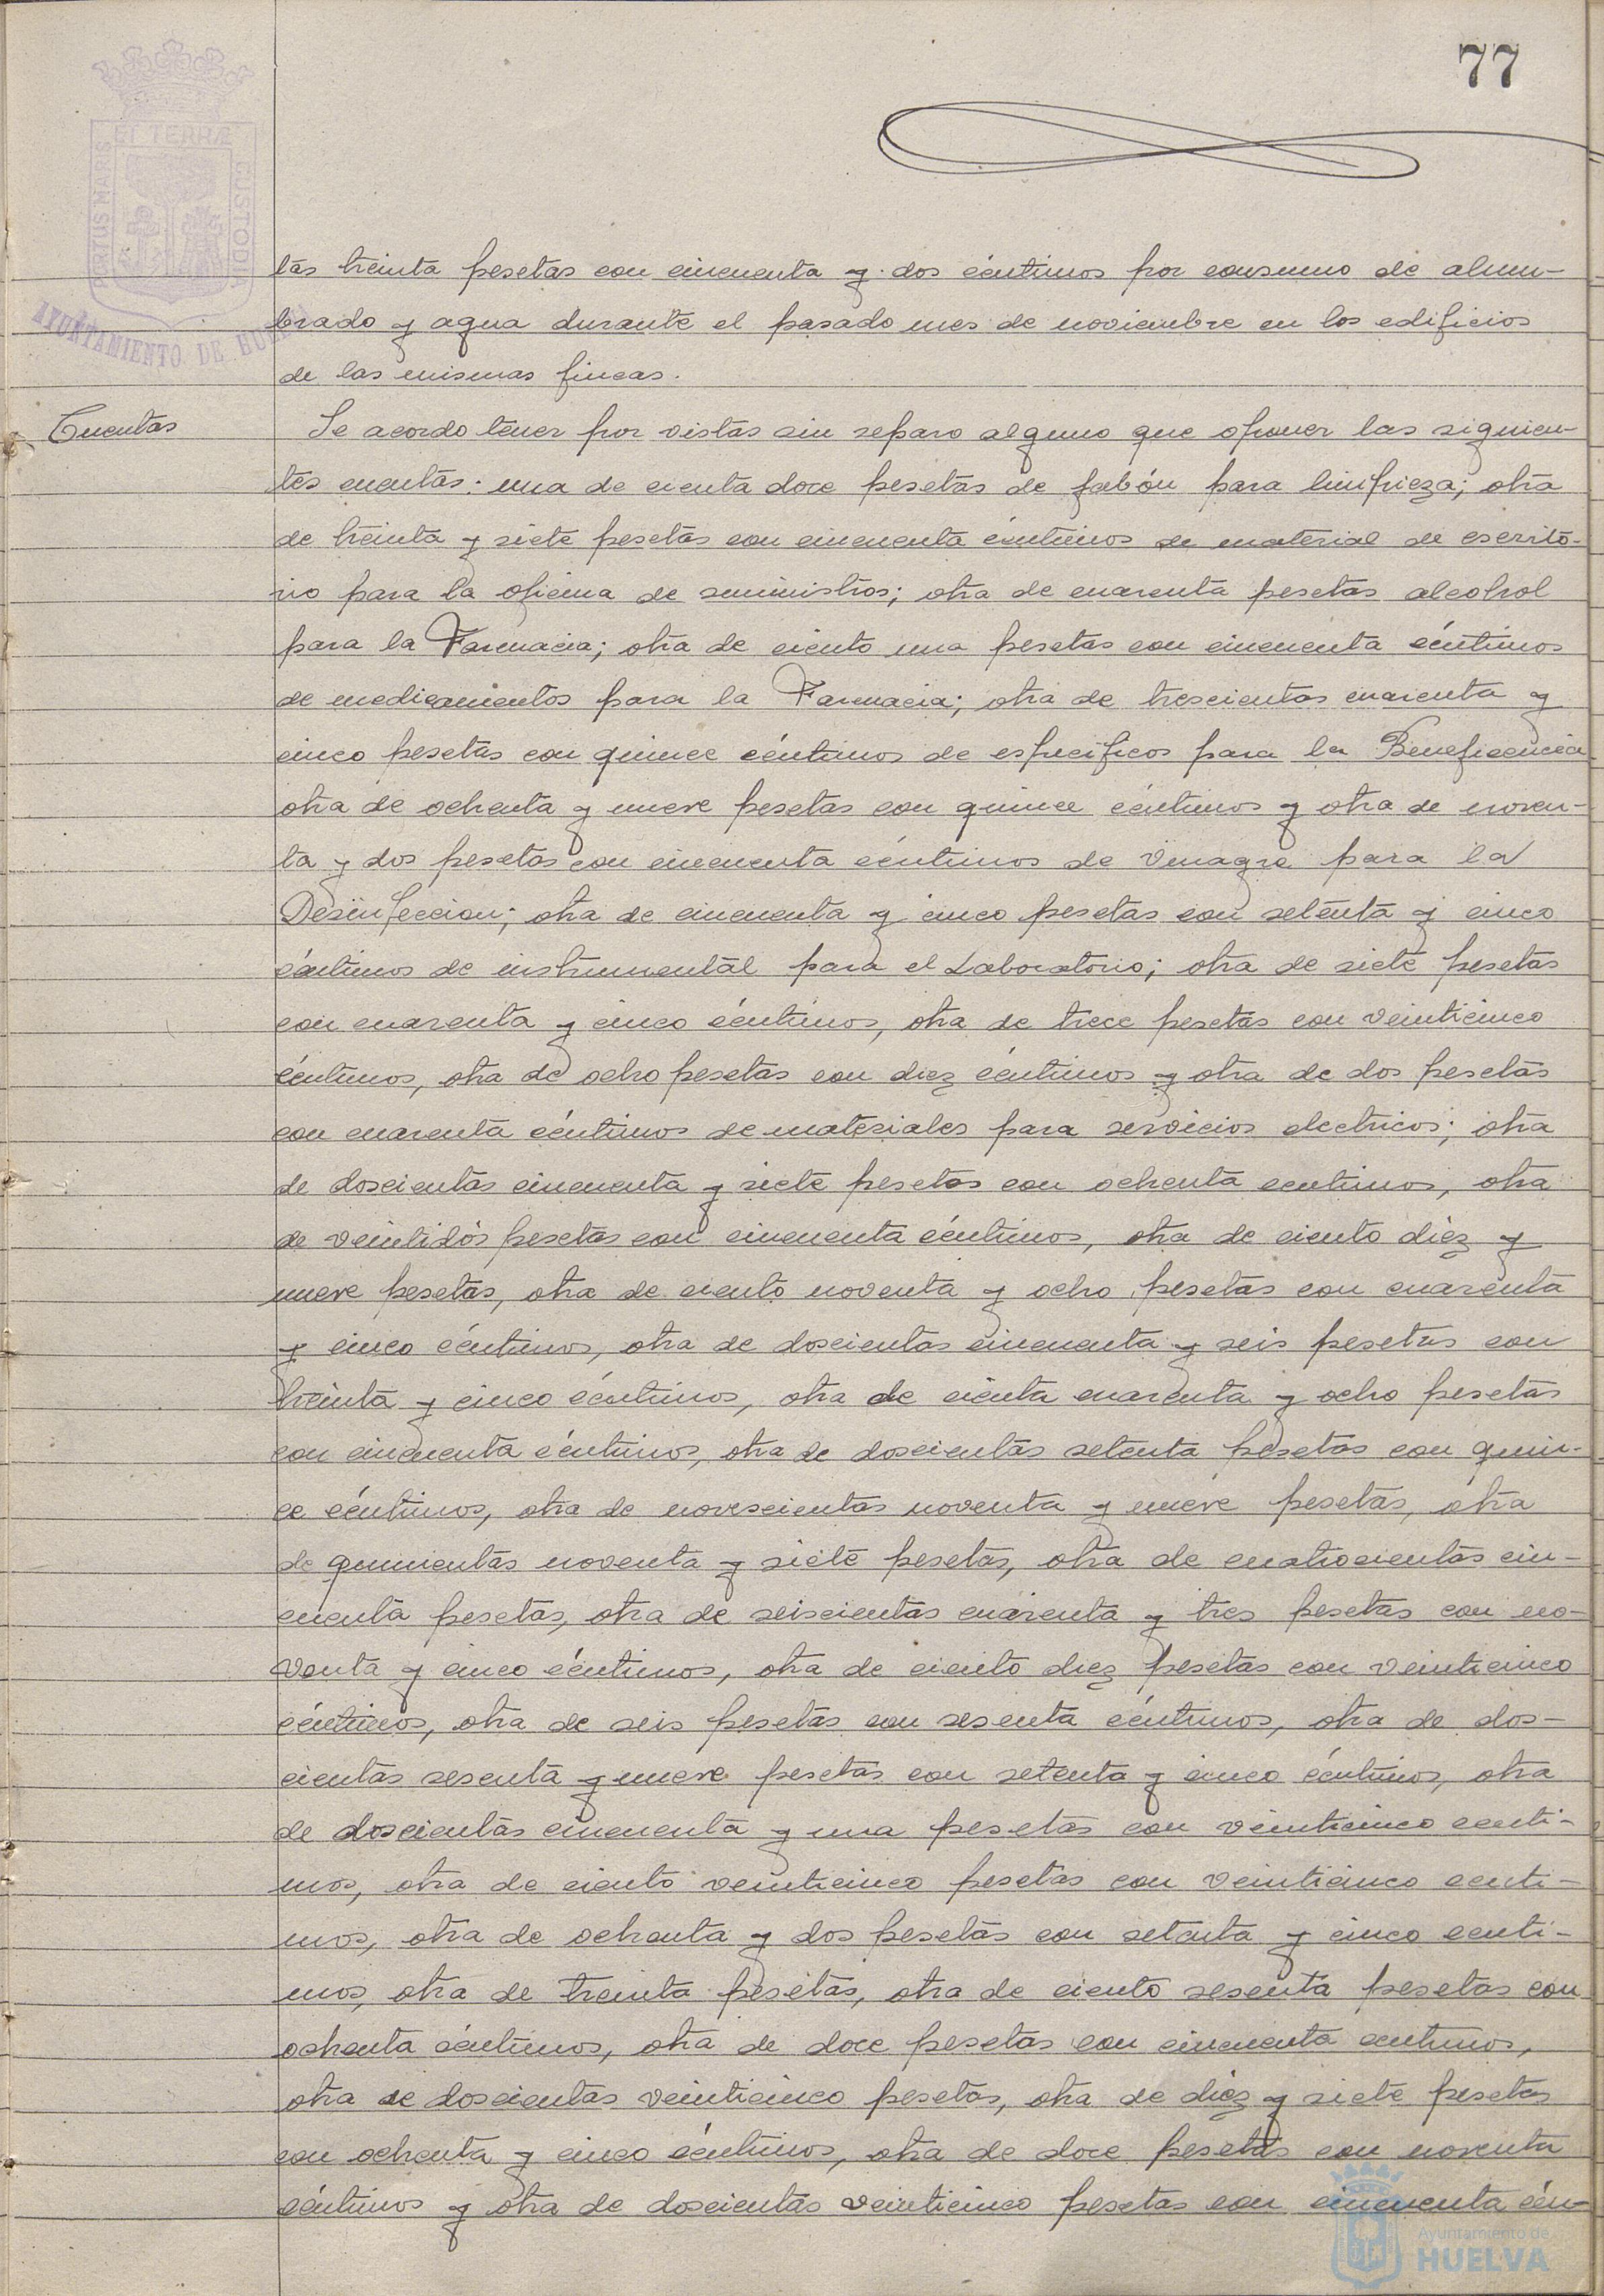 77
PORTUS MARIS
ET TERRÆ
CUSTODIA
AYUNTAMIENTO DE HUELVA
tas treinta pesetas con cincuenta y dos céntimos por consumo de alum-
brado y agua durante el pasado mes de noviembre en los edificios
de las mismas fincas.
Cuentas
Se acordo tener por vistas sin reparo alguno que oponer las siguien-
tes cuentas: una de cienta doce pesetas de jabón para limpieza; otra
de treinta y siete pesetas con cincuenta céntimos de material de escrito-
rio para la oficina de suministros; otra de cuarenta pesetas alcohol
para la Farmacia; otra de ciento una pesetas con cincuenta céntimos
de medicamentos para la Farmacia; otra de trescientas cuarenta y
cinco pesetas con quince céntimos de especificos para la Beneficencia
otra de ochenta y nueve pesetas con quince céntimos y otra de noven-
ta y dos pesetas con cincuenta céntimos de vinagre para la
Desinfeccion; otra de cincuenta y cinco pesetas con setenta y cinco
céntimos de instrumental para el Laboratorio; otra de siete pesetas
con cuarenta y cinco céntimos, otra de trece pesetas con veinticinco
céntimos, otra de ocho pesetas con diez céntimos y otra de dos pesetas
con cuarenta céntimos de materiales para servicios electricos; otra
de doscientas cincuenta y siete pesetas con ochenta centimos, otra
de veintidós pesetas con cincuenta céntimos, otra de ciento diez y
nueve pesetas, otra de ciento noventa y ocho pesetas con cuarenta
y cinco céntimos, otra de doscientas cincuenta y seis pesetas con
treinta y cinco céntimos, otra de cienta cuarenta y ocho pesetas
con cincuenta céntimos, otra de doscientas setenta pesetas con quin-
ce céntimos, otra de novescientas noventa y nueve pesetas, otra
de quinientas noventa y siete pesetas, otra de cuatrocientas cin-
cuenta pesetas, otra de seiscientas cuarenta y tres pesetas con no-
venta y cinco céntimos, otra de ciento diez pesetas con veinticinco
céntimos, otra de seis pesetas con sesenta céntimos, otra de dos-
cientas sesenta y nueve pesetas con setenta y cinco céntimos, otra
de doscientas cincuenta y una pesetas con veinticinco centi-
mos, otra de ciento veinticinco pesetas con veinticinco centi-
mos, otra de ochenta y dos pesetas con setenta y cinco centi-
mos, otra de treinta pesetas, otra de ciento sesenta pesetas con
ochenta céntimos, otra de doce pesetas con cincuenta centimos,
otra de doscientas veinticinco pesetas, otra de diez y siete pesetas
con ochenta y cinco céntimos, otra de doce pesetas con noventa
céntimos y otra de doscientas veinticinco pesetas con cincuenta cén-
Ayuntamiento de
HUELVA